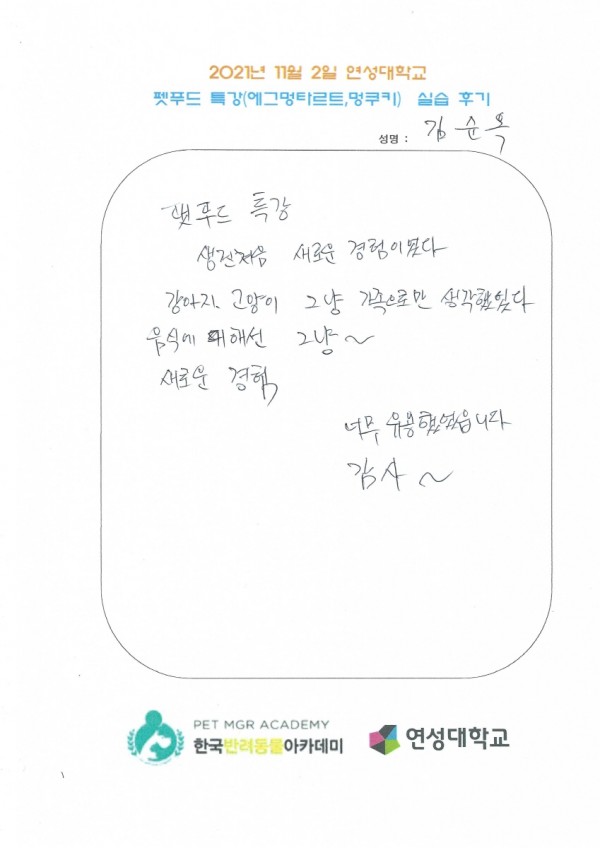 2021년 11월 2일 연성대학교
펫푸드 특강(에그멍타르트,멍쿠키) 실습 후기
성명 : 김순옥
펫푸드 특강
생전처음 새로운 경험이었다
강아지. 고양이 그냥 가족으로만 생각했었다
음식에 대해선 그냥~
새로운 경험,
너무 유용했었읍니다
감사~
PET MGR ACADEMY
한국반려동물아카데미
연성대학교